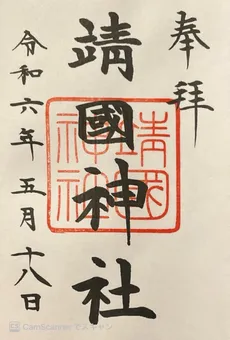 奉拝
靖國神社
靖國神社
令和六年五月十八日
CamScanner でスキャン